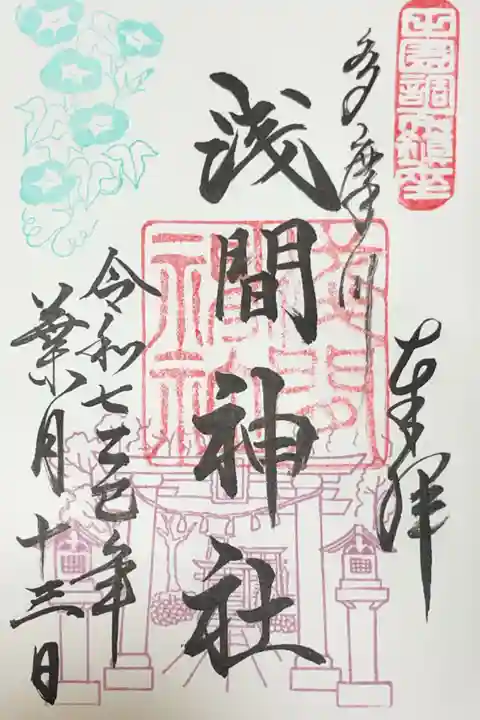 田園調布鎮座
奉拝
多摩川
浅間神社
令和七乙巳年
葉月十三日